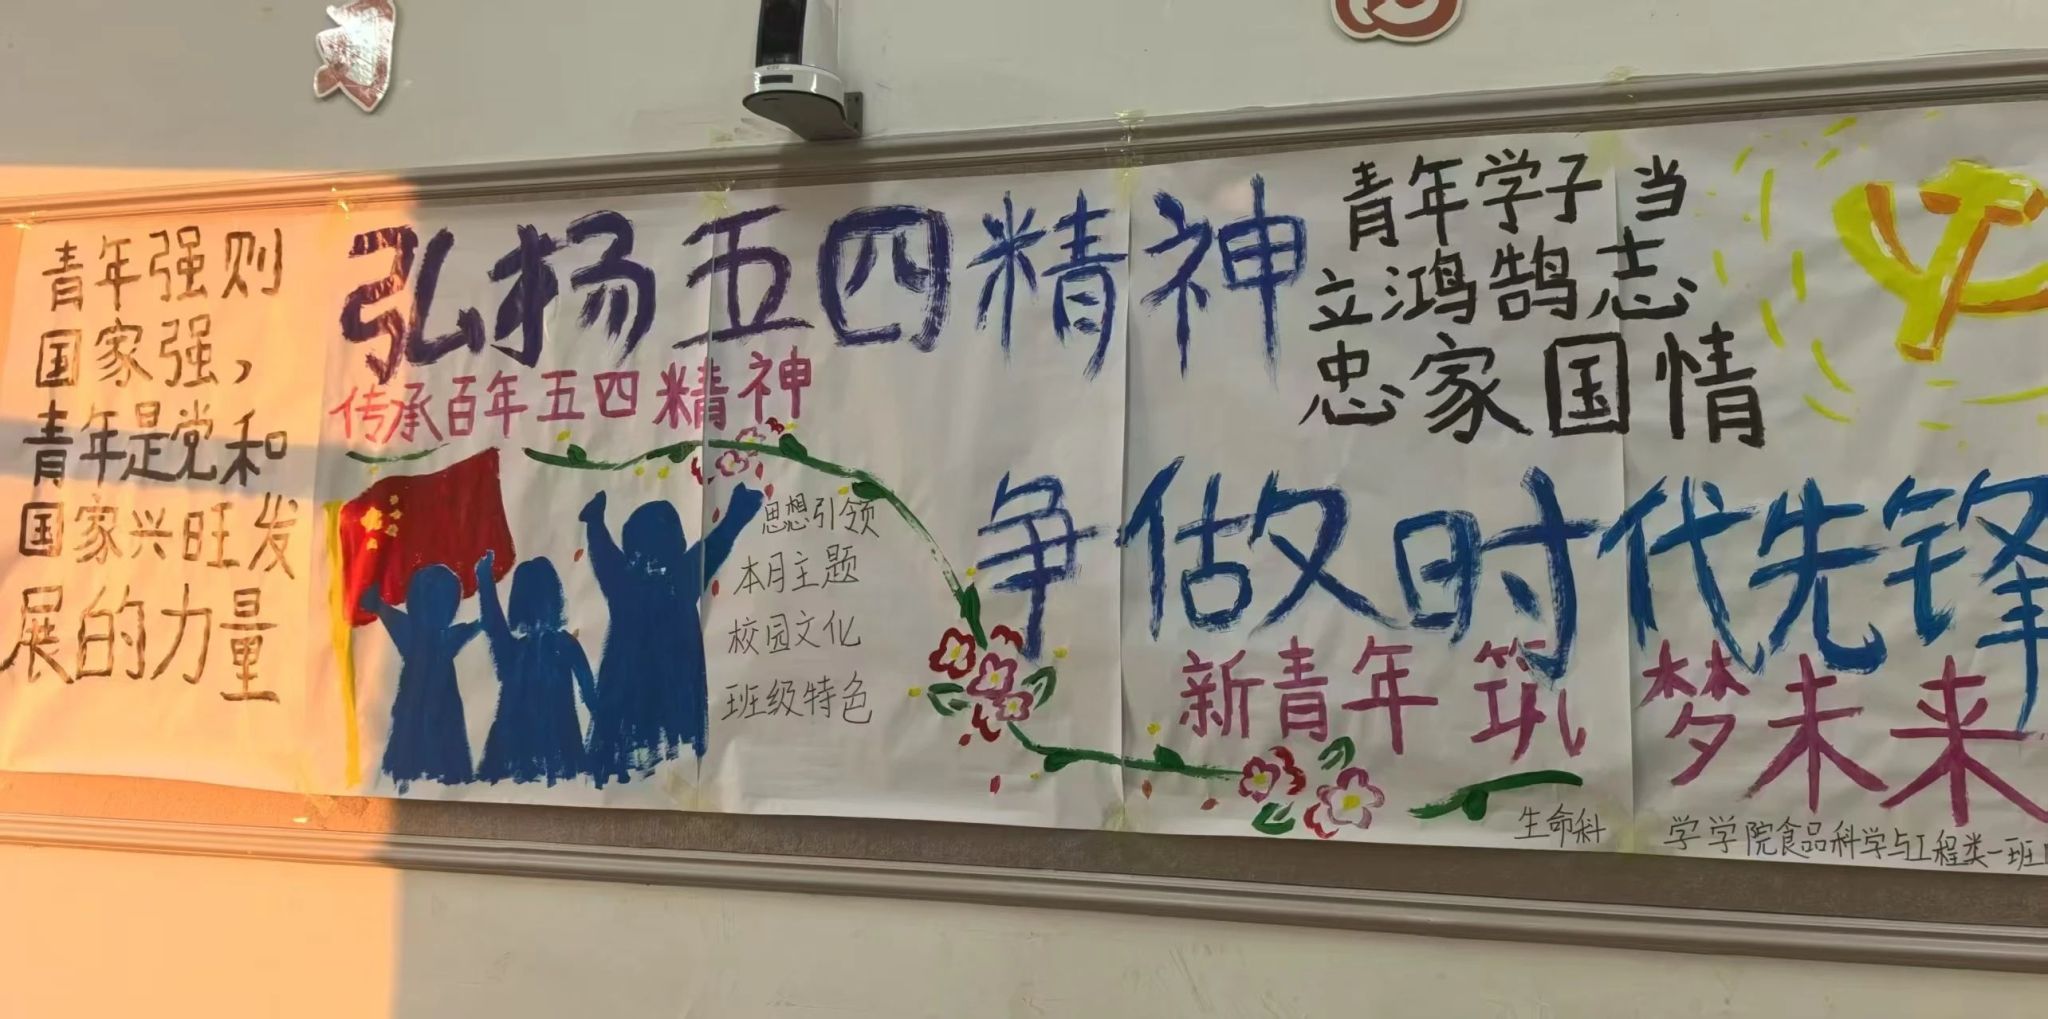 青年强则
国家强，
青年是党和
国家兴旺发
展的力量
弘扬五四精神
传承百年五四精神
思想引领
本月主题
校园文化
班级特色
青年学子当
立鸿鹄志
忠家国情
争做时代先锋
新青年筑梦未来
生命科学学院食品科学与工程类一班